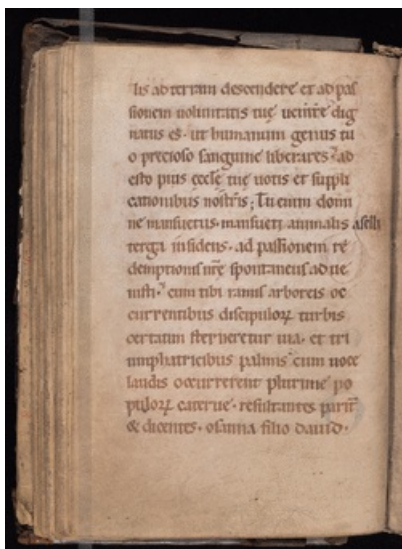 lis ad terram descendere et ad pas
sionem uoluntatis tuę uenire dig
natus es· ut humanum genus tu
o precioso sanguine liberares· ad
esto pius ęccle tuę uotis et suppli
cationibus nostris; Tu enim domi
ne mansuetus· mansueti animalis aselli
terga insidens· ad passionem re
demptionis nrę spontaneus adue
nisti· cum tibi ramis arboreis oc
currentibus discipuloꝝ turbis
certatim sterneretur uia· et tri
umphatricibus palmis cum uoce
laudis occurrerent plurime po
puloꝝ caterue· resultantes parit̄
& dicentes· osanna filio dauid·